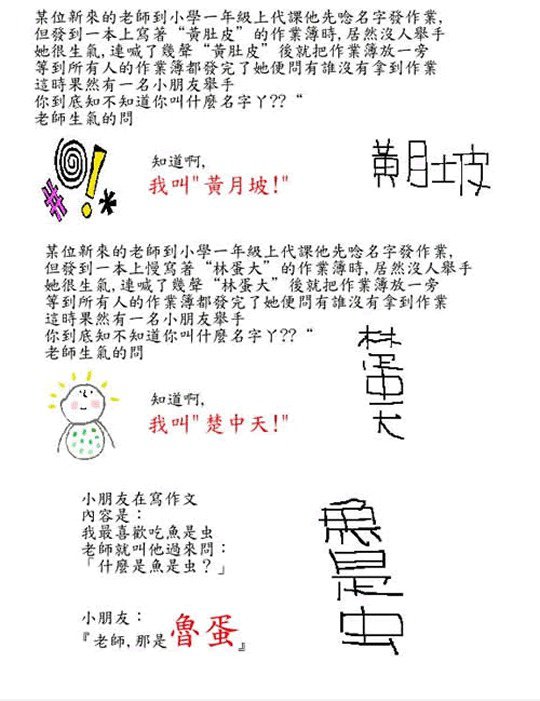 某位新來的老師到小學一年級上代課他先唸名字發作業,
但發到一本上寫著“黃肚皮”的作業薄時,居然沒人舉手
她很生氣,連喊了幾聲“黃肚皮”後就把作業薄放一旁
等到所有人的作業薄都發完了她便問有誰沒有拿到作業
這時果然有一名小朋友舉手
你到底知不知道你叫什麼名字丫??“
老師生氣的問
#@!*
知道啊,
我叫"黃月坡!"
黃月土皮
某位新來的老師到小學一年級上代課他先唸名字發作業,
但發到一本上慢寫著“林蛋大”的作業薄時,居然沒人舉手
她很生氣,連喊了幾聲“林蛋大”後就把作業薄放一旁
等到所有人的作業薄都發完了她便問有誰沒有拿到作業
這時果然有一名小朋友舉手
你到底知不知道你叫什麼名字丫??“
老師生氣的問
知道啊,
我叫"楚中天!"
林蛋大
小朋友在寫作文
內容是:
我最喜歡吃魚是虫
老師就叫他過來問:
「什麼是魚是虫?」
小朋友:
『老師,那是魯蛋』
魚是虫